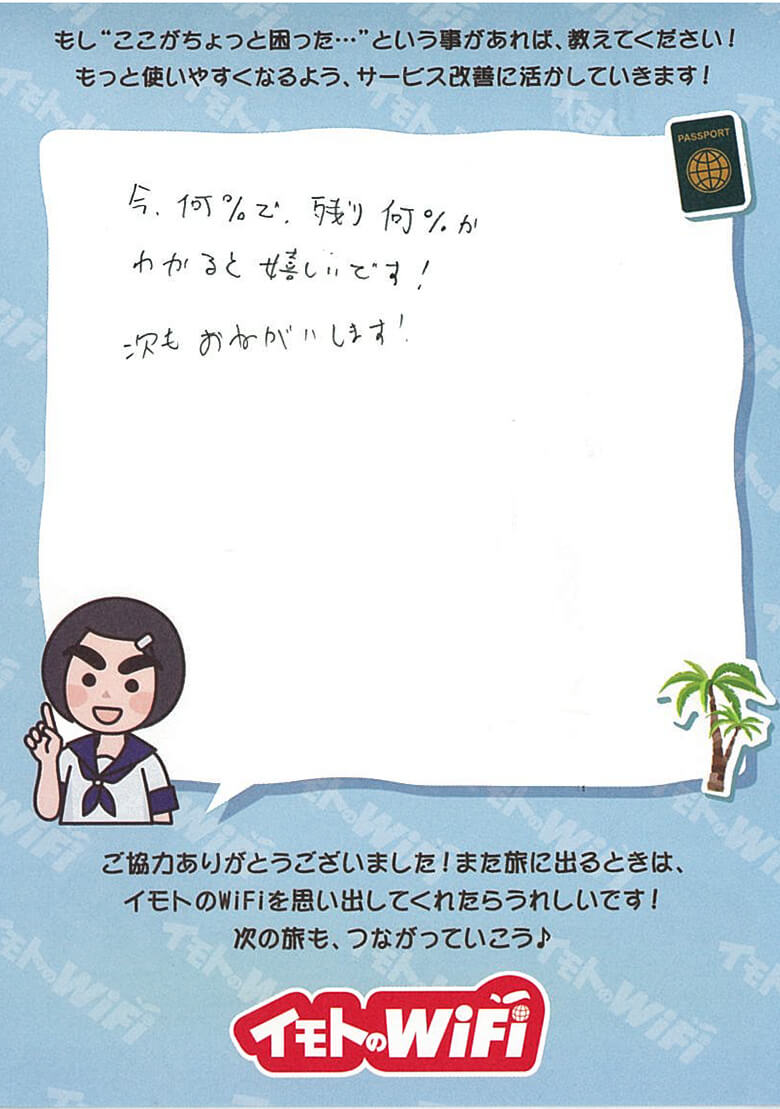 もし“ここがちょっと困った…”という事があれば、教えてください！
もっと使いやすくなるよう、サービス改善に活かしていきます！
PASSPORT
今、何%で、残り何%か
わかると嬉しいです！
次もおねがいします！
ご協力ありがとうございました！また旅に出るときは、
イモトのWiFiを思い出してくれたらうれしいです！
次の旅も、つながっていこう♪
イモトのWiFi